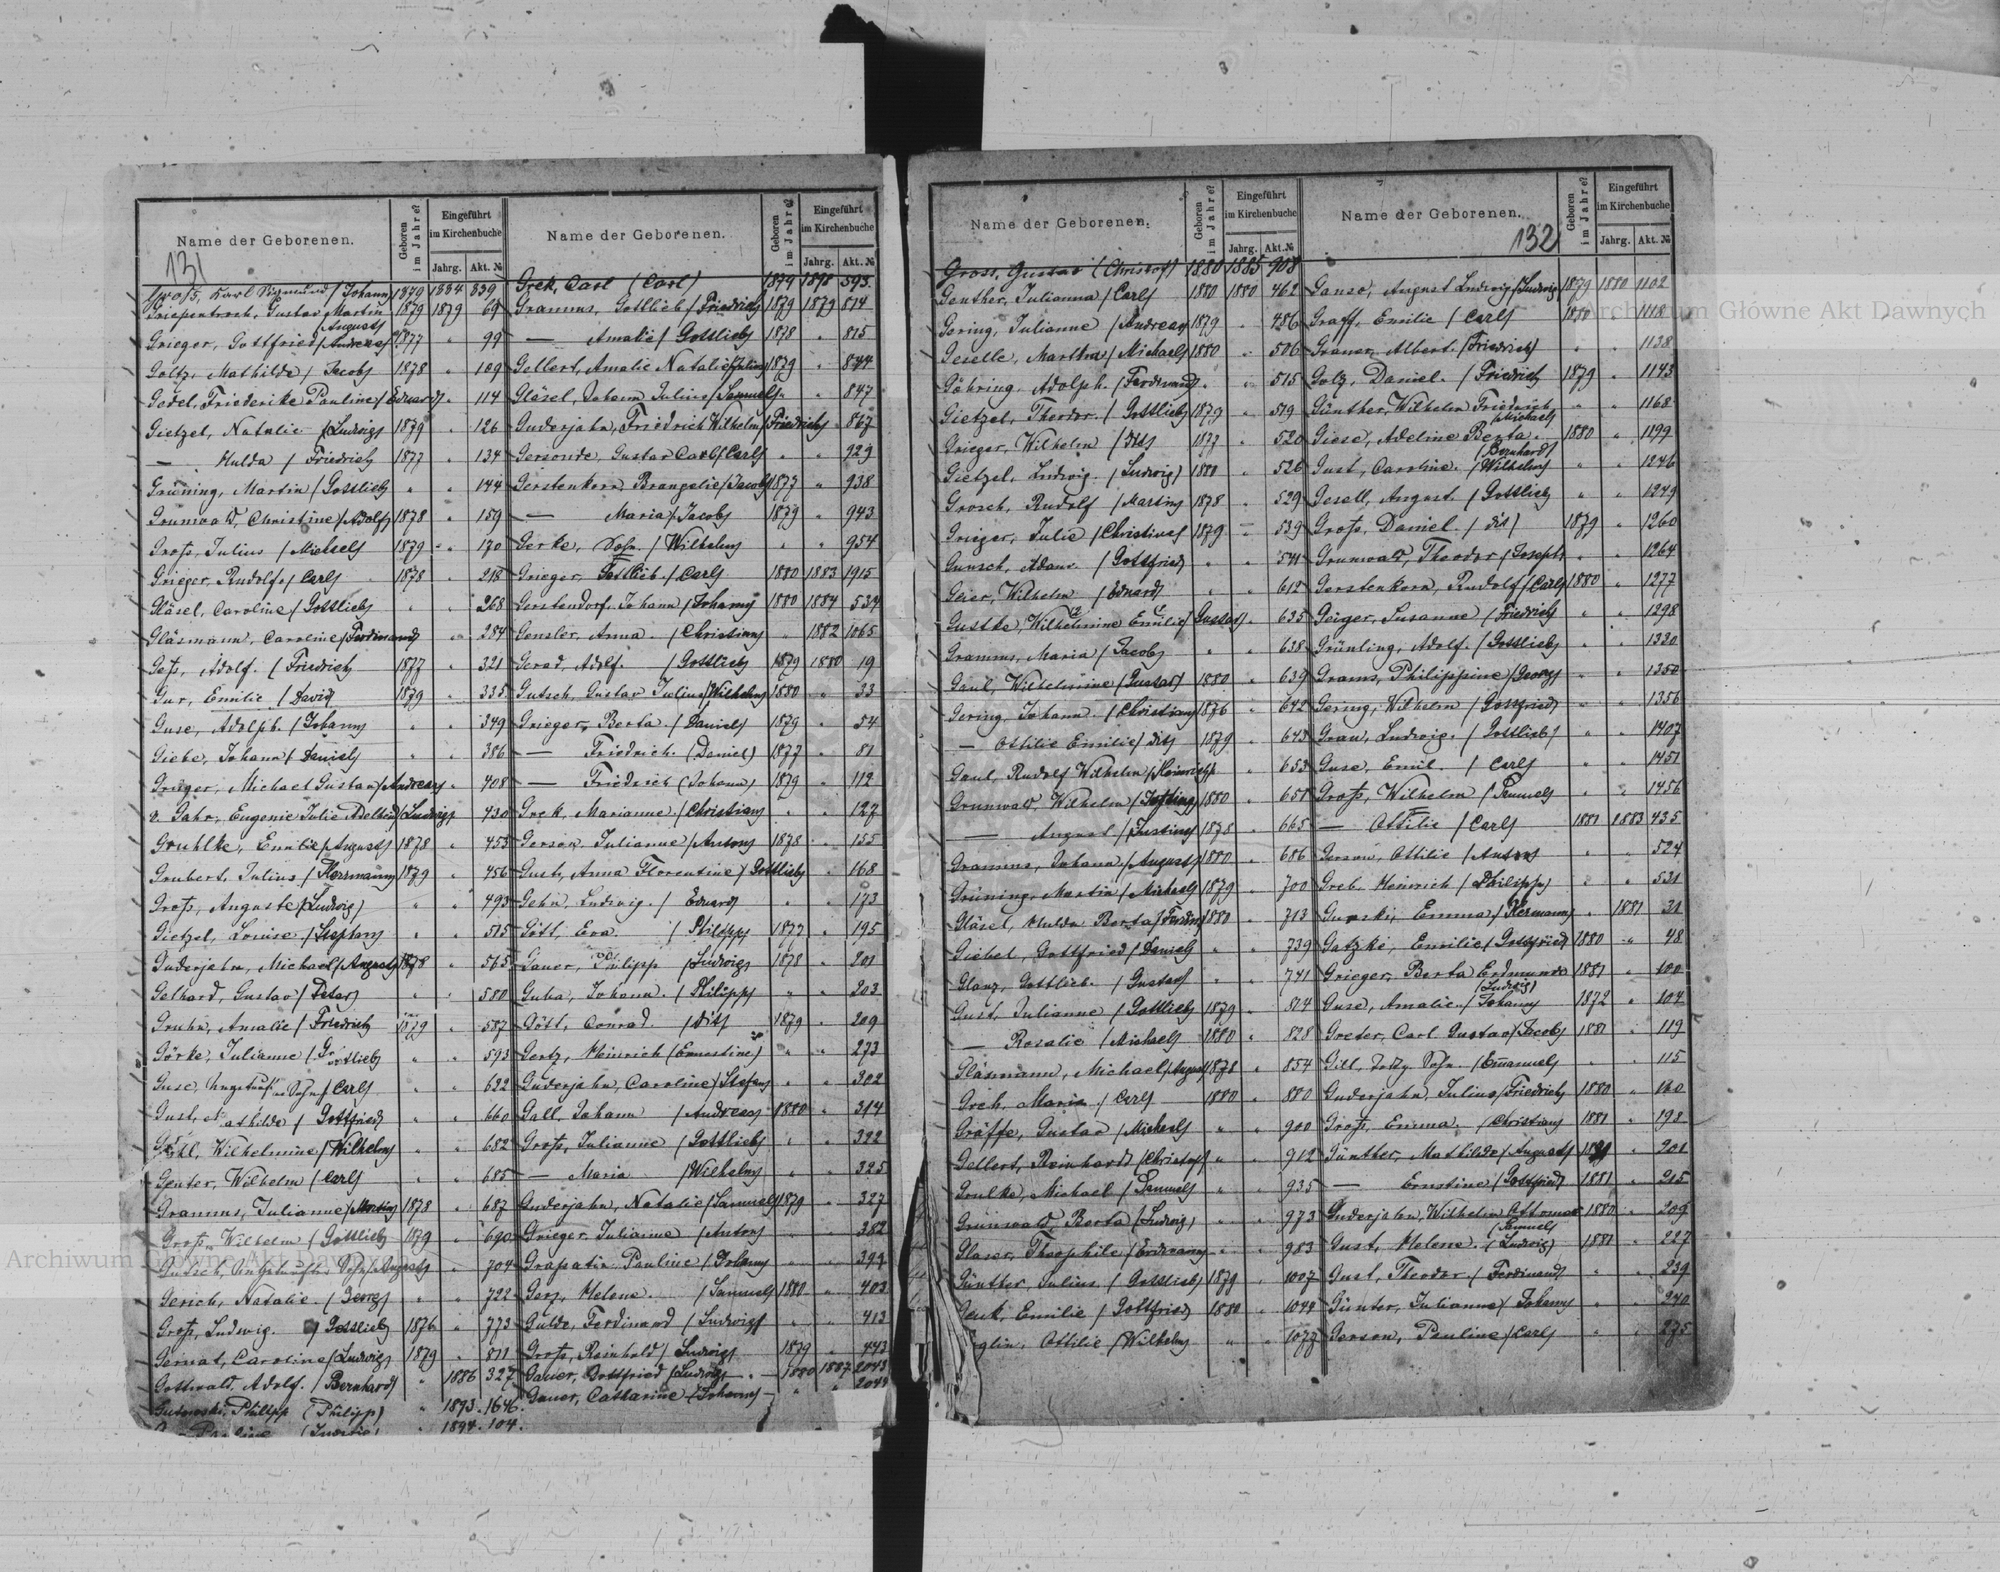 Name der Geborenen.
Geboren im Jahre?
Eingeführt im Kirchenbuche
Jahrg. Akt. №
131
Groß, Karl Sigmund / Johann 1879 1884 839
Gustav Martin / August 1879 1879 69
Grieger, Gottfried / Andreas 1877 " 99
Goltz, Mathilde / Jacob 1878 " 109
Friederike Pauline / Eduard " 114
Gietzel, Natalie / Ludwig 1879 " 126
— Hulda / Friedrich 1877 " 134
Grüning, Martin / Gottlieb " " 144
Grunwald, Christine / Adolf 1878 " 159
Groß, Julius / Michael 1879 " 170
Grieger, Rudolf / Carl 1878 " 218
Gläsel, Caroline / Gottlieb " " 268
Gläsmann, Caroline / Ferdinand " 284
Geß, Adolf. / Friedrich 1877 " 321
Gur, Emilie / David 1879 " 335
Guse, Adolph. / Johann " " 349
Giebe, Johann / Daniel " " 386
Grieger, Michael Gustav / Andreas " 408
v. Gahr, Eugenie Julie Adelheid / Ludwig " 430
Gruhlke, Emilie / August 1878 " 453
Grubert, Julius / Herrmann 1879 " 456
Groß, Auguste / Ludwig " " 493
Gietzel, Louise / Stephan " " 515
Guderjahn, Michael / August 1878 " 565
Gelhard, Gustav / Peter " " 580
Gruhn, Amalie / Friedrich 1879 " 587
Görke, Julianne / Gottlieb " " 593
Guse, Ungetauft. Sohn / Carl " " 622
Gust, Mathilde / Gottfried " " 660
Wilhelmine / Wilhelm " " 682
Genter, Wilhelm / Carl " " 685
Gramms, Julianne / Martin 1878 " 687
Groß, Wilhelm / Gottlieb 1879 " 690
Gutsch, Ungetaufter Sohn / August " 704
Gerich, Natalie / Georg " " 722
Groß, Ludwig. / Gottlieb 1876 " 773
Caroline / Ludwig 1879 " 811
Gottwald, Adolf. / Bernhard " 1886 327
Gutowski, Philipp (Philipp) " 1873. 1646.
Pauline (Ludwig) " 1894. 104.
Name der Geborenen.
Geboren im Jahre?
Eingeführt im Kirchenbuche
Jahrg. Akt. №
Grek, Carl (Carl) 1879 1898 593.
Gramms, Gottlieb / Friedrich 1879 1879 814
— Amalie / Gottlieb 1878 " 815
Gellert, Amalie Natalie / Julius 1879 " 844
Gläsel, Johann Julius / Samuel " " 847
Guderjahn, Friedrich Wilhelm / Friedrich " 867
Gersonde, Gustav Carl / Carl " " 929
Gerstenkorn, Brangelie / Jacob 1877 " 938
— Maria / Jacob 1879 " 943
Gerke, Sohn. / Wilhelm " " 954
Grieger, Gottlieb. / Carl 1880 1883 1915
Gerstendorf, Johann / Johann 1880 1884 534
Gensler, Anna. / Christian " 1882 1065
Gerad, Adolf. / Gottlieb 1879 1880 19
Gutsch, Gustav Julius / Wilhelm 1880 " 33
Grieger, Berta. / Daniel 1879 " 54
— Friedrich. (Daniel) 1877 " 81
— Friedrich (Johann) 1879 " 112
Grek, Marianne / Christian " " 127
Gerson, Julianne / Anton 1878 " 155
Gust, Anna Florentine / Gottlieb " 168
Gehn, Ludwig. / Eduard " " 173
Gött, Eva. / Philipp 1877 " 195
Gauer, Philipp / Ludwig 1878 " 201
Guba, Johann. / Philipp " " 203
Gött, Conrad. / dit 1879 " 209
Gertz, Heinrich (Ernestine) " " 273
Guderjahn, Caroline / Stefan " " 302
Gall, Johann / Andreas 1880 " 314
Groß, Julianne / Gottlieb " " 322
— Maria / Wilhelm " " 325
Guderjahn, Natalie / Samuel 1879 " 327
Grieger, Julianne / Anton " " 382
Grapatin, Pauline / Johann " " 394
Helene. / Samuel 1880 " 403
Gulde, Ferdinand / Ludwig " " 413
Groß, Reinhold / Ludwig 1879 " 443
Gauer, Gottfried / Ludwig — " — 1880 1887 2043
Gauer, Catharine / Johann — " " 2044
Name der Geborenen.
Geboren im Jahre?
Eingeführt im Kirchenbuche
Jahrg. Akt. №
Gross, Gustav (Christof) 1880 1885 908
Genther, Julianna / Carl 1880 1880 462
Gering, Julianne / Andreas 1879 " 486
Geselle, Martha / Michael 1880 " 506
Göhring, Adolph. / Ferdinand " " 515
Gietzel, Theodor. / Gottlieb 1879 " 519
Grieger, Wilhelm / dit 1877 " 520
Gietzel, Ludwig. / Ludwig 1880 " 526
Grosch, Rudolf / Martin 1878 " 529
Grieger, Julie / Christine 1879 " 539
Gunsch, Adam. / Gottfried " " 541
Geier, Wilhelm / Eduard " " 612
Gustke, Wilhelmine Emilie / Gustav " 635
Gramms, Maria / Jacob " " 638
Gaul, Wilhelmine / Gustav 1880 " 639
Gering, Johann. / Christian 1876 " 642
— Ottilie Emilie / dit 1879 " 643
Gaul, Rudolf Wilhelm / Heinrich " 653
Grunwald, Wilhelm / Justin 1880 " 651
— August / Justin 1878 " 665
Gramms, Johann. / August 1880 " 686
Grüning, Martin / Michael 1879 " 700
Gläsel, Hulda Berta / Ferdin. 1880 " 713
Giebel, Gottfried / Daniel " " 739
Glanz, Gottlieb. / Gustav " " 741
Gust, Julianne / Gottlieb 1879 " 814
— Rosalie / Michael 1880 " 828
Gläsmann, Michael / August 1878 " 854
Grek, Maria / Carl 1880 " 880
Gräffe, Gustav / Michael " " 900
Gellert, Reinhard / Christof " " 912
Grulke, Michael / Samuel " " 935
Grunwald, Berta / Ludwig " " 973
Glaser, Theophile / Erdmann " " 983
Günther, Julius / Gottlieb 1879 " 1007
Emilie / Gottfried 1880 " 1049
Ottilie / Wilhelm " " 1077
Name der Geborenen.
132
Geboren im Jahre?
Eingeführt im Kirchenbuche
Jahrg. Akt. №
Ganse, August Ludwig / Ludwig 1879 1880 1102
Graff, Emilie / Carl 1880 " 1112
Albert. / Friedrich " " 1138
Golz, Daniel. / Friedrich 1879 " 1143
Günther, Wilhelm Friedrich / Michael " " 1168
Giese, Adeline Berta. / Bernhard 1880 " 1199
Gust, Caroline. / Wilhelm " " 1246
Gesell, August. / Gottlieb " " 1249
Groß, Daniel. / dit 1879 " 1260
Grunwald, Theodor / Joseph " " 1264
Gerstenkorn, Rudolf / Carl 1880 " 1277
Geiger, Susanne / Friedrich " " 1298
Grünling, Adolf. / Gottlieb " " 1330
Grams, Philippine / Georg " " 1350
Gering, Wilhelm / Gottfried " " 1356
Grau, Ludwig. / Gottlieb " " 1407
Guse, Emil. / Carl " " 1451
Groß, Wilhelm / Samuel " " 1456
— Ottilie / Carl 1881 1883 435
Gerson, Ottilie / Anton " " 524
Greb, Heinrich / Philipp " " 531
Emma / Hermann " 1881 31
Gatzke, Emilie / Gottfried 1880 " 48
Grieger, Berta Erdmunde / Ludwig 1881 " 100
Guse, Amalie. / Johann 1872 " 102
Greter, Carl Gustav / Jacob 1881 " 119
Gill, Sohn. / Emanuel " " 115
Guderjahn, Julius / Friedrich 1880 " 160
Groß, Emma. / Christian 1881 " 198
Günther, Mathilde / August " 201
— Ernstine / Gottfried 1881 " 215
Guderjahn, Wilhelm Ottomar / Samuel 1880 " 209
Gust, Helene. / Ludwig 1881 " 227
Gust, Theodor / Ferdinand " " 239
Günter, Julianne / Johann " " 240
Gerson, Pauline / Carl " " 275
Archiwum Główne Akt Dawnych
Archiwum Główne Akt Dawnych